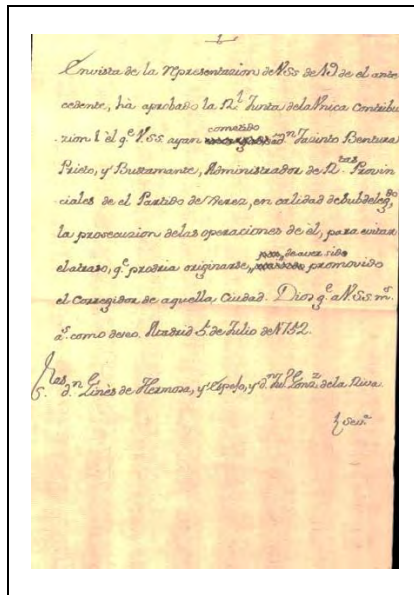 Envista de la Representazion de V.SS de 19 de el ante
cedente, há aprobado la Rl. Junta dela Vnica Contribu
zion l èl q.e V.SS. ayan cometido à dn. Jacinto Bentura
Prieto, y Bustamante, Administrador de Rtas. Provin
ciales de el Partido de Xerez, en calidad de Subdeleg.do
la prosecuzion delas operaciones de él, para evitar
el atraso, q.e podria originarse, de aver sido promovido
el Corregidor de aquella Ciudad. Dios g.e a V.SS m.s
a.s como deseo. Madrid 5 de Julio de 1752.
S.res dn. Ginès de Hermosa, y Espejo, y dn. Ju.o Gonz.z de la Riva.